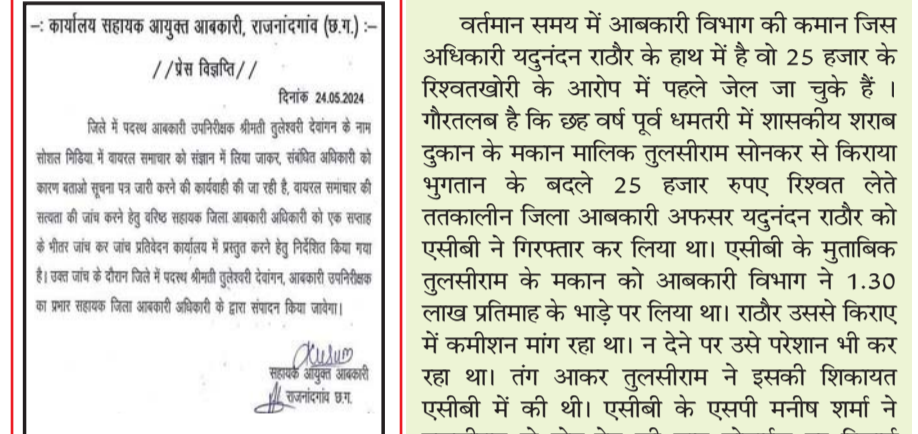 -: कार्यालय सहायक आयुक्त आबकारी, राजनांदगांव (छ.ग.) :-
//प्रेस विज्ञप्ति//
दिनांक 24.05.2024
जिले में पदस्थ आबकारी उपनिरीक्षक श्रीमती तुलेश्वरी देवांगन के नाम
सोशल मिडिया में वायरल समाचार को संज्ञान में लिया जाकर, संबंधित अधिकारी को
कारण बताओ सूचना पत्र जारी करने की कार्यवाही की जा रही है, वायरल समाचार की
सत्यता की जांच करने हेतु वरिष्ठ सहायक जिला आबकारी अधिकारी को एक सप्ताह
के भीतर जांच कर जांच प्रतिवेदन कार्यालय में प्रस्तुत करने हेतु निर्देशित किया गया
है। उक्त जांच के दौरान जिले में पदस्थ श्रीमती तुलेश्वरी देवांगन, आबकारी उपनिरीक्षक
का प्रभार सहायक जिला आबकारी अधिकारी के द्वारा संपादन किया जावेगा।
सहायक आयुक्त आबकारी
राजनांदगांव छ.ग.
वर्तमान समय में आबकारी विभाग की कमान जिस
अधिकारी यदुनंदन राठौर के हाथ में है वो 25 हजार के
रिश्वतखोरी के आरोप में पहले जेल जा चुके हैं ।
गौरतलब है कि छह वर्ष पूर्व धमतरी में शासकीय शराब
दुकान के मकान मालिक तुलसीराम सोनकर से किराया
भुगतान के बदले 25 हजार रुपए रिश्वत लेते
ततकालीन जिला आबकारी अफसर यदुनंदन राठौर को
एसीबी ने गिरफ्तार कर लिया था। एसीबी के मुताबिक
तुलसीराम के मकान को आबकारी विभाग ने 1.30
लाख प्रतिमाह के भाड़े पर लिया था। राठौर उससे किराए
में कमीशन मांग रहा था। न देने पर उसे परेशान भी कर
रहा था। तंग आकर तुलसीराम ने इसकी शिकायत
एसीबी में की थी। एसीबी के एसपी मनीष शर्मा ने